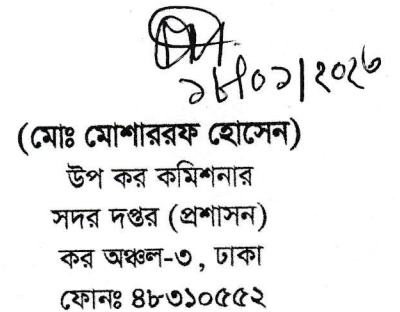 ১৮/০১/২০২৬
(মোঃ মোশাররফ হোসেন)
উপ কর কমিশনার
সদর দপ্তর (প্রশাসন)
কর অঞ্চল-৩, ঢাকা
ফোনঃ ৪৮৩১০৫৫২